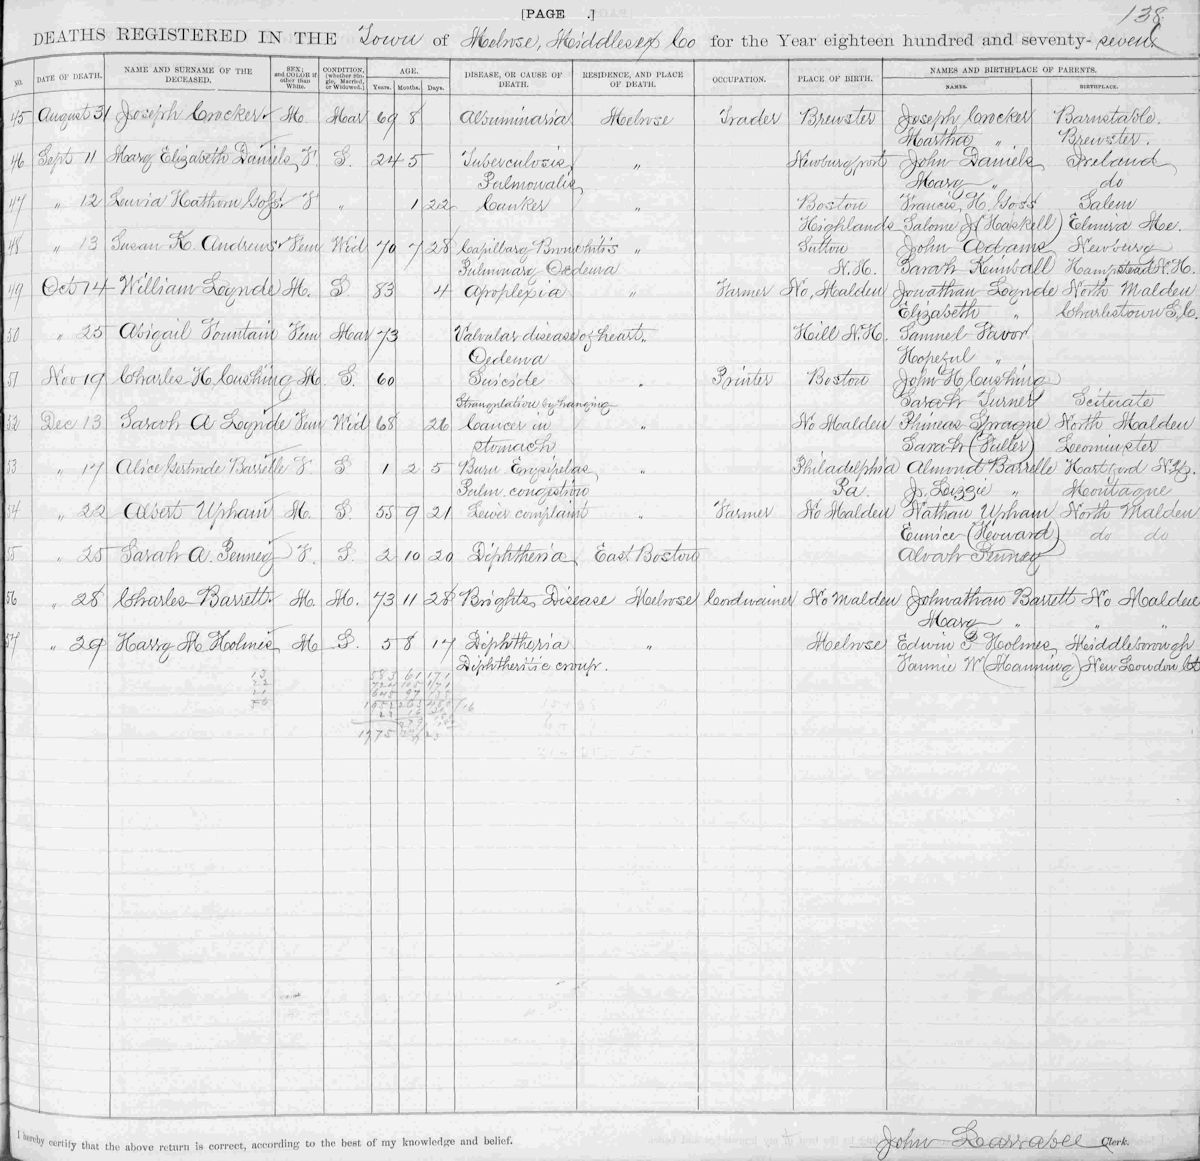 [PAGE .]
138
DEATHS REGISTERED IN THE Town of Melrose, Middlesex Co for the Year eighteen hundred and seventy-seven
NO. DATE OF DEATH. NAME AND SURNAME OF THE DECEASED. SEX; and COLOR if other than White. CONDITION, (whether Single, Married, or Widowed.) AGE. Years. Months. Days. DISEASE, OR CAUSE OF DEATH. RESIDENCE, AND PLACE OF DEATH. OCCUPATION. PLACE OF BIRTH. NAMES AND BIRTHPLACE OF PARENTS. NAMES. BIRTHPLACE.
45 August 31 Joseph Crocker. M. Mar 69 8 Albuminaria Melrose Trader Brewster Joseph Crocker Barnstable.
Martha " Brewster.
46 Sept 11 Mary Elizabeth Daniels F. S. 24 5 Tuberculosis " Newburyport John Daniels Ireland
Pulmonalis Mary " do
47 " 12 Luvia Hathorn Goss. F " 1 22 Canker " Boston Francis H. Goss Salem
Highlands Salome J (Haskell) Elmira Me.
48 " 13 Susan K. Andrews Fem Wid 70 7 28 Capillary Bronchitis " Sutton John Adams Newbury
Pulmonary Oedema N.H. Sarah Kimball Hampstead N.H.
49 Oct 14 William Lynde M. S 83 4 Apoplexia " Farmer No. Malden Jonathan Lynde North Malden
Elizabeth " Charlestown S.C.
50 " 25 Abigail Fountain Fem Mar 73 Valvular disease of heart. Hill N.H. Samuel Favor
Oedema Hopeful "
51 Nov 19 Charles H. Cushing M. S. 60 Suicide " Printer Boston John H Cushing
Strangulation by hanging Sarah Turner Scituate
52 Dec 13 Sarah A Lynde Fem Wid 68 26 Cancer in " No Malden Phineas Sprague North Malden
stomach Sarah (Fuller) Leominster
53 " 17 Alice Gertrude Barrelle F S 1 2 5 Burn Erysipelas " Philadelphia Almond Barrelle Hartford
Pulm. congestion Pa. Jr. Lizzie " Montague
54 " 22 Albert Upham M. S. 55 9 21 Liver complaint " Farmer No Malden Nathan Upham North Malden
Eunice (Howard) do do
55 " 25 Sarah A. Penney F. S. 2 10 20 Diphtheria East Boston Alvah Penney
56 " 28 Charles Barrett. M. M. 73 11 28 Brights Disease Melrose Cordwainer No Malden Johnathan Barrett No Malden
Mary " " "
57 " 29 Harry M. Holmes M S. 5 8 17 Diphtheria " Melrose Edwin P Holmes Middleborough
Diphtheritic croup. Fannie W (Manning) New London Ct
I hereby certify that the above return is correct, according to the best of my knowledge and belief.
John Larrabee Clerk.